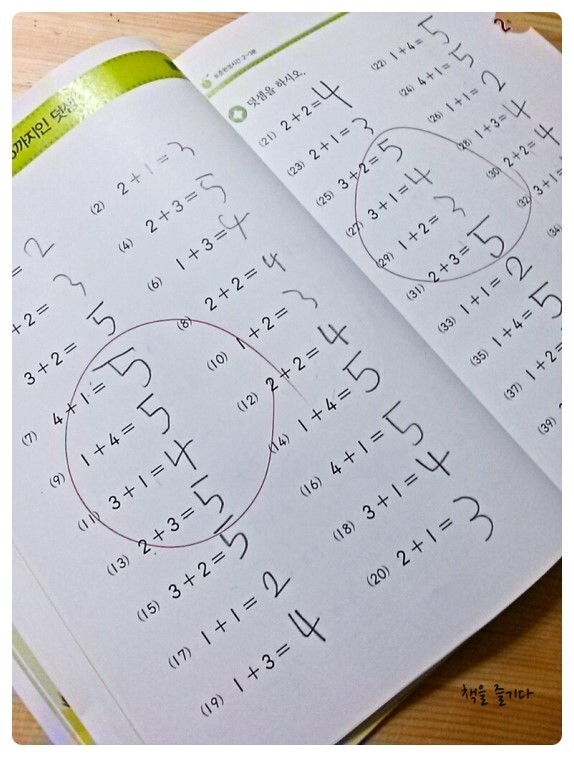 까지인 덧셈
= 2
(2) 2 + 1 = 3
+ 2 = 3
(4) 2 + 3 = 5
3 + 2 = 5
(6) 1 + 3 = 4
(7) 4 + 1 = 5
(8) 2 + 2 = 4
(9) 1 + 4 = 5
(10) 1 + 2 = 3
(11) 3 + 1 = 4
(12) 2 + 2 = 4
(13) 2 + 3 = 5
(14) 1 + 4 = 5
(15) 3 + 2 = 5
(16) 4 + 1 = 5
(17) 1 + 1 = 2
(18) 3 + 1 = 4
(19) 1 + 3 = 4
(20) 2 + 1 = 3
덧셈을 하시오.
(21) 2 + 2 = 4
(22) 1 + 4 = 5
(23) 2 + 1 = 3
(24) 4 + 1 = 5
(25) 3 + 2 = 5
(26) 1 + 1 = 2
(27) 3 + 1 = 4
(28) 1 + 3 = 4
(29) 1 + 2 = 3
(30) 2 + 2 = 4
(31) 2 + 3 = 5
(32) 3 + 1 =
(33) 1 + 1 = 2
(34)
(35) 1 + 4 = 5
(37) 1 + 2 =
(39)
책을 즐기다